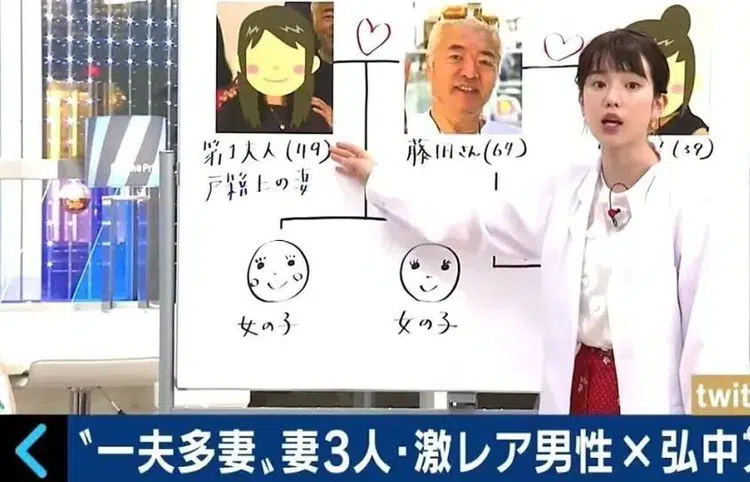 第1夫人(49)
戸籍上の妻
藤田さん(69)
(39)
女の子
女の子
twit
〝一夫多妻〟妻3人・激レア男性×弘中